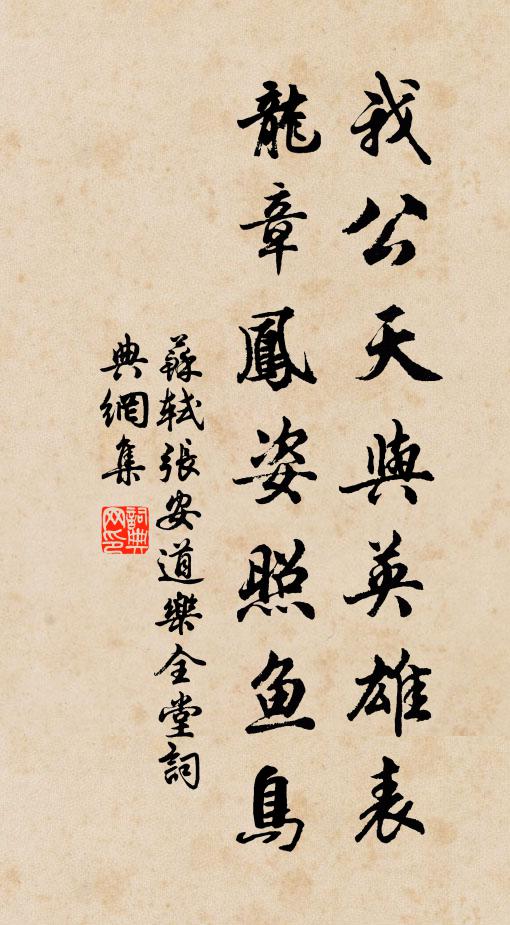 我公天與英雄表
龍章鳳姿照鱼鳥
蘇軾張安道樂全堂詞
典網集
詞典網印